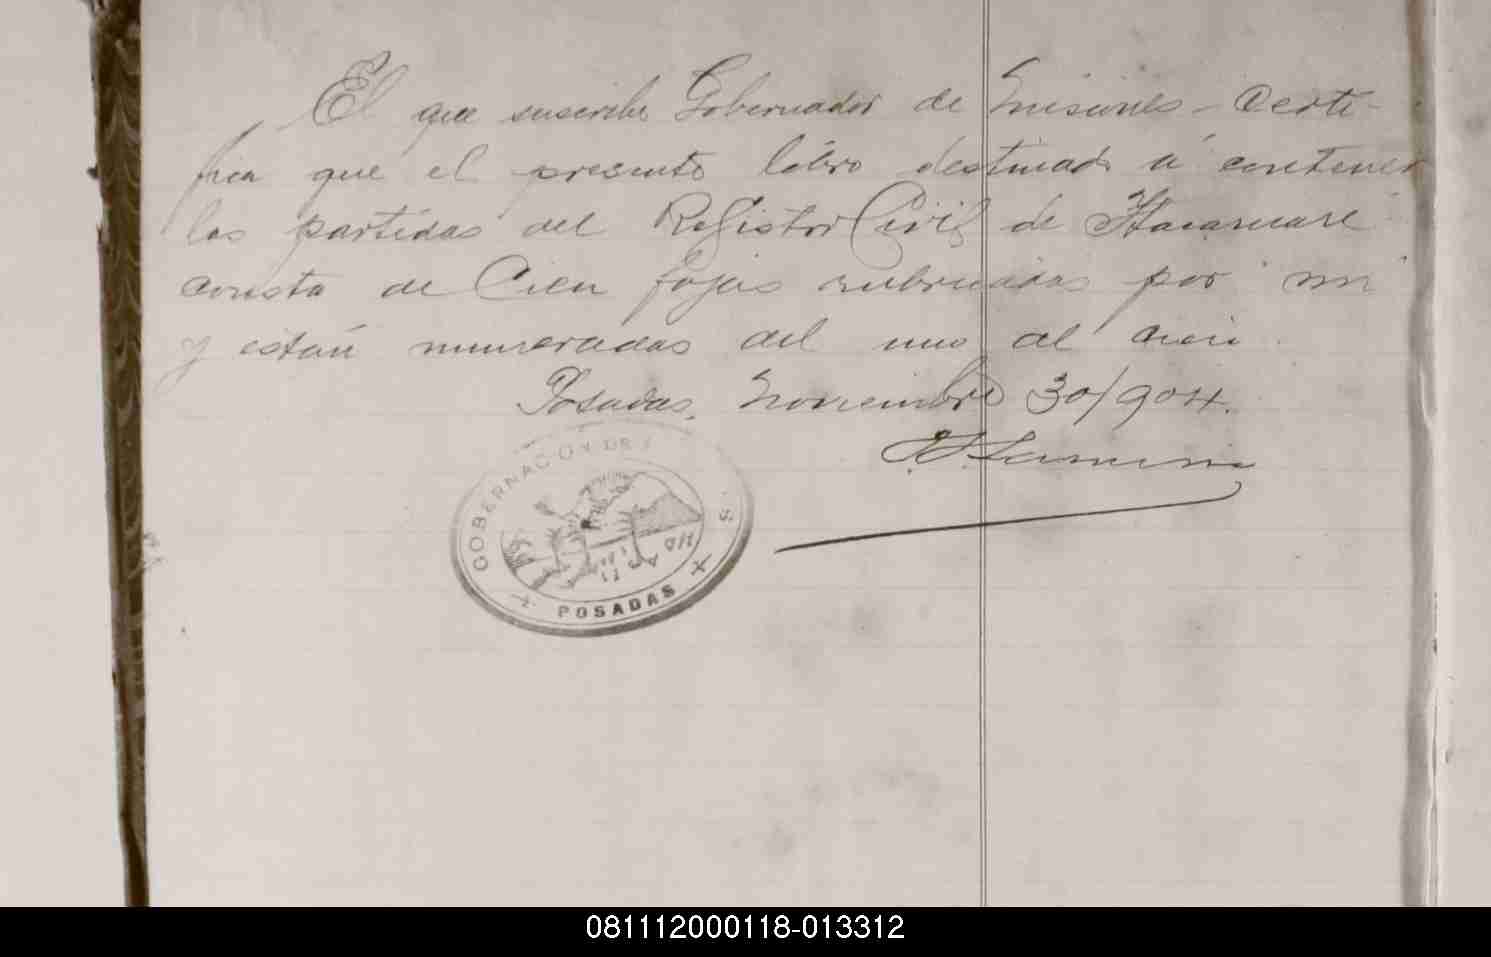 El que suscribe Gobernador de Misiones - Certi-
fica que el presente libro destinado á contener
las partidas del Registro Civil de Itacaruaré
consta de Cien fojas rubricadas por mi
y están numeradas del uno al cien
Posadas, Noviembre 30/904.
GOBERNACION DE
POSADAS
081112000118-013312